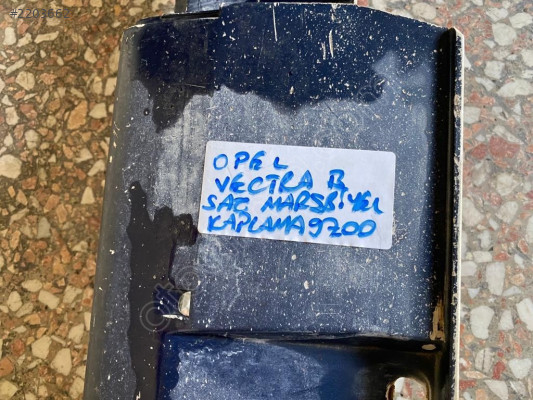 OPEL
VECTRA B
SAĞ MARŞBİYEL
KAPLAMA 9700